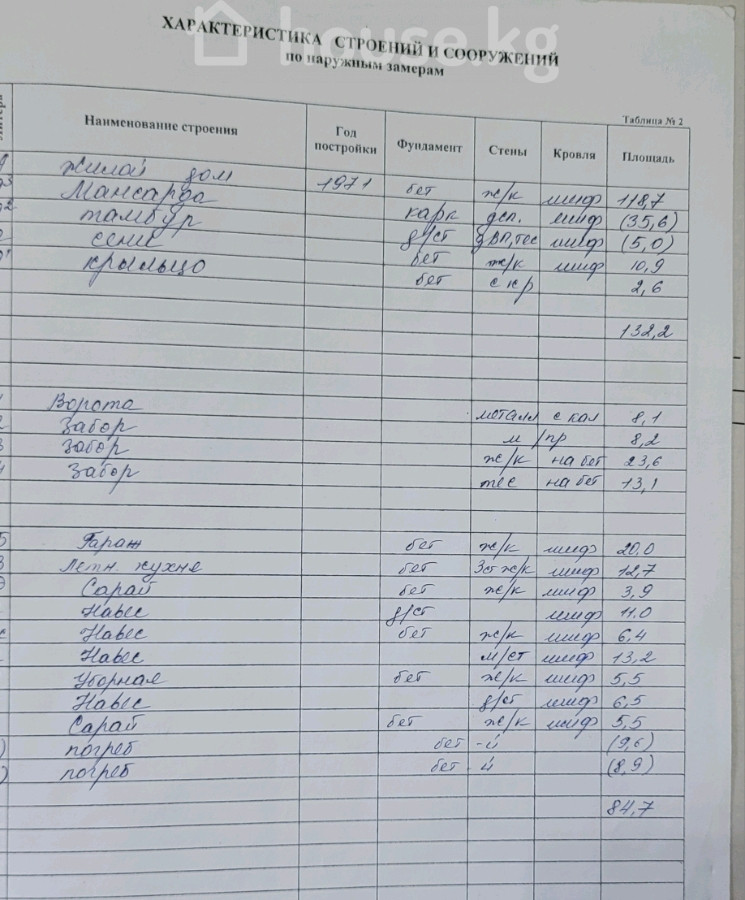 house.kg
ХАРАКТЕРИСТИКА СТРОЕНИЙ И СООРУЖЕНИЙ
по наружным замерам
Таблица № 2
Литера Наименование строения Год постройки Фундамент Стены Кровля Площадь
Жилой дом 1971 бет ж/к шиф 118,7
Мансарда карк дсп. шиф (35,6)
тамбур д/ст ДВП,тес шиф (5,0)
сени бет ж/к шиф 10,9
крыльцо бет с кр 2,6
132,2
Ворота металл с кал 8,1
Забор м/пр 8,2
Забор ж/к на бет 23,6
Забор тес на бет 13,1
Гараж бет ж/к шиф 20,0
Летн. кухне бет 3ст ж/к шиф 12,7
Сарай бет ж/к шиф 3,9
Навес д/ст шиф 11,0
Навес бет ж/к шиф 6,4
Навес м/ст шиф 13,2
Уборная бет ж/к шиф 5,5
Навес д/ст шиф 6,5
Сарай бет ж/к шиф 5,5
погреб бет -й (9,6)
погреб бет -й (8,9)
84,7